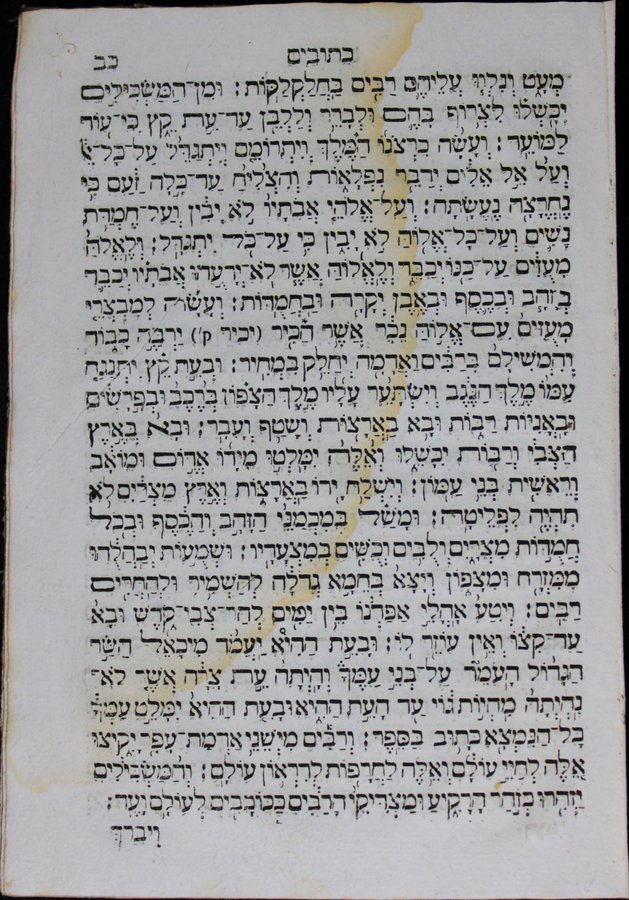 כתובים
כב
מְעָט וְנִלְווּ עֲלֵיהֶם רַבִּים בַּחֲלַקְלַקּוֹת׃ וּמִן־הַמַּשְׂכִּילִים
יִכָּשְׁלוּ לִצְרוֹף בָּהֶם וּלְבָרֵר וְלַלְבֵּן עַד־עֵת קֵץ כִּי־עוֹד
לַמּוֹעֵד׃ וְעָשָׂה כִרְצֹנוֹ הַמֶּלֶךְ וְיִתְרוֹמֵם וְיִתְגַּדֵּל עַל־כָּל־אֵ
וְעַל אֵל אֵלִים יְדַבֵּר נִפְלָאוֹת וְהִצְלִיחַ עַד־כָּלָה זַעַם כִּי
נֶחֱרָצָה נֶעֱשָׂתָה׃ וְעַל־אֱלֹהֵי אֲבֹתָיו לֹא יָבִין וְעַל־חֶמְדַּת
נָשִׁים וְעַל־כָּל־אֱלוֹהַּ לֹא יָבִין כִּי עַל־כֹּל יִתְגַּדָּל׃ וְלֶאֱלֹהַּ
מָעֻזִּים עַל־כַּנּוֹ יְכַבֵּד וְלֶאֱלוֹהַּ אֲשֶׁר לֹא־יְדָעֻהוּ אֲבֹתָיו יְכַבֵּד
בְּזָהָב וּבְכֶסֶף וּבְאֶבֶן יְקָרָה וּבַחֲמֻדוֹת׃ וְעָשָׂה לְמִבְצְרֵי
מָעֻזִּים עִם־אֱלוֹהַּ נֵכָר אֲשֶׁר הִכִּיר (יכיר ק׳) יַרְבֶּה כָבוֹד
וְהִמְשִׁילָם בָּרַבִּים וַאֲדָמָה יְחַלֵּק בִּמְחִיר׃ וּבְעֵת קֵץ יִתְנַגַּח
עִמּוֹ מֶלֶךְ הַנֶּגֶב וְיִשְׂתָּעֵר עָלָיו מֶלֶךְ הַצָּפוֹן בְּרֶכֶב וּבְפָרָשִׁים
וּבָאֳנִיּוֹת רַבּוֹת וּבָא בַאֲרָצוֹת וְשָׁטַף וְעָבָר׃ וּבָא בְּאֶרֶץ
הַצְּבִי וְרַבּוֹת יִכָּשֵׁלוּ וְאֵלֶּה יִמָּלְטוּ מִיָּדוֹ אֱדוֹם וּמוֹאָב
וְרֵאשִׁית בְּנֵי עַמּוֹן׃ וְיִשְׁלַח יָדוֹ בַּאֲרָצוֹת וְאֶרֶץ מִצְרַיִם לֹא
תִהְיֶה לִפְלֵיטָה׃ וּמָשַׁל בְּמִכְמַנֵּי הַזָּהָב וְהַכֶּסֶף וּבְכֹל
חֲמֻדוֹת מִצְרָיִם וְלֻבִים וְכֻשִׁים בְּמִצְעָדָיו׃ וּשְׁמֻעוֹת יְבַהֲלֻהוּ
מִמִּזְרָח וּמִצָּפוֹן וְיָצָא בְּחֵמָא גְדֹלָה לְהַשְׁמִיד וּלְהַחֲרִים
רַבִּים׃ וְיִטַּע אָהֳלֵי אַפַּדְנוֹ בֵּין יַמִּים לְהַר־צְבִי־קֹדֶשׁ וּבָא
עַד־קִצּוֹ וְאֵין עוֹזֵר לוֹ׃ וּבָעֵת הַהִיא יַעֲמֹד מִיכָאֵל הַשַּׂר
הַגָּדוֹל הָעֹמֵד עַל־בְּנֵי עַמֶּךָ וְהָיְתָה עֵת צָרָה אֲשֶׁר לֹא־
נִהְיְתָה מִהְיוֹת גּוֹי עַד הָעֵת הַהִיא וּבָעֵת הַהִיא יִמָּלֵט עַמְּךָ
כָּל־הַנִּמְצָא כָּתוּב בַּסֵּפֶר׃ וְרַבִּים מִיְּשֵׁנֵי אַדְמַת־עָפָר יָקִיצוּ
אֵלֶּה לְחַיֵּי עוֹלָם וְאֵלֶּה לַחֲרָפוֹת לְדִרְאוֹן עוֹלָם׃ וְהַמַּשְׂכִּילִים
יַזְהִרוּ כְּזֹהַר הָרָקִיעַ וּמַצְדִּיקֵי הָרַבִּים כַּכּוֹכָבִים לְעוֹלָם וָעֶד׃
וִיברך